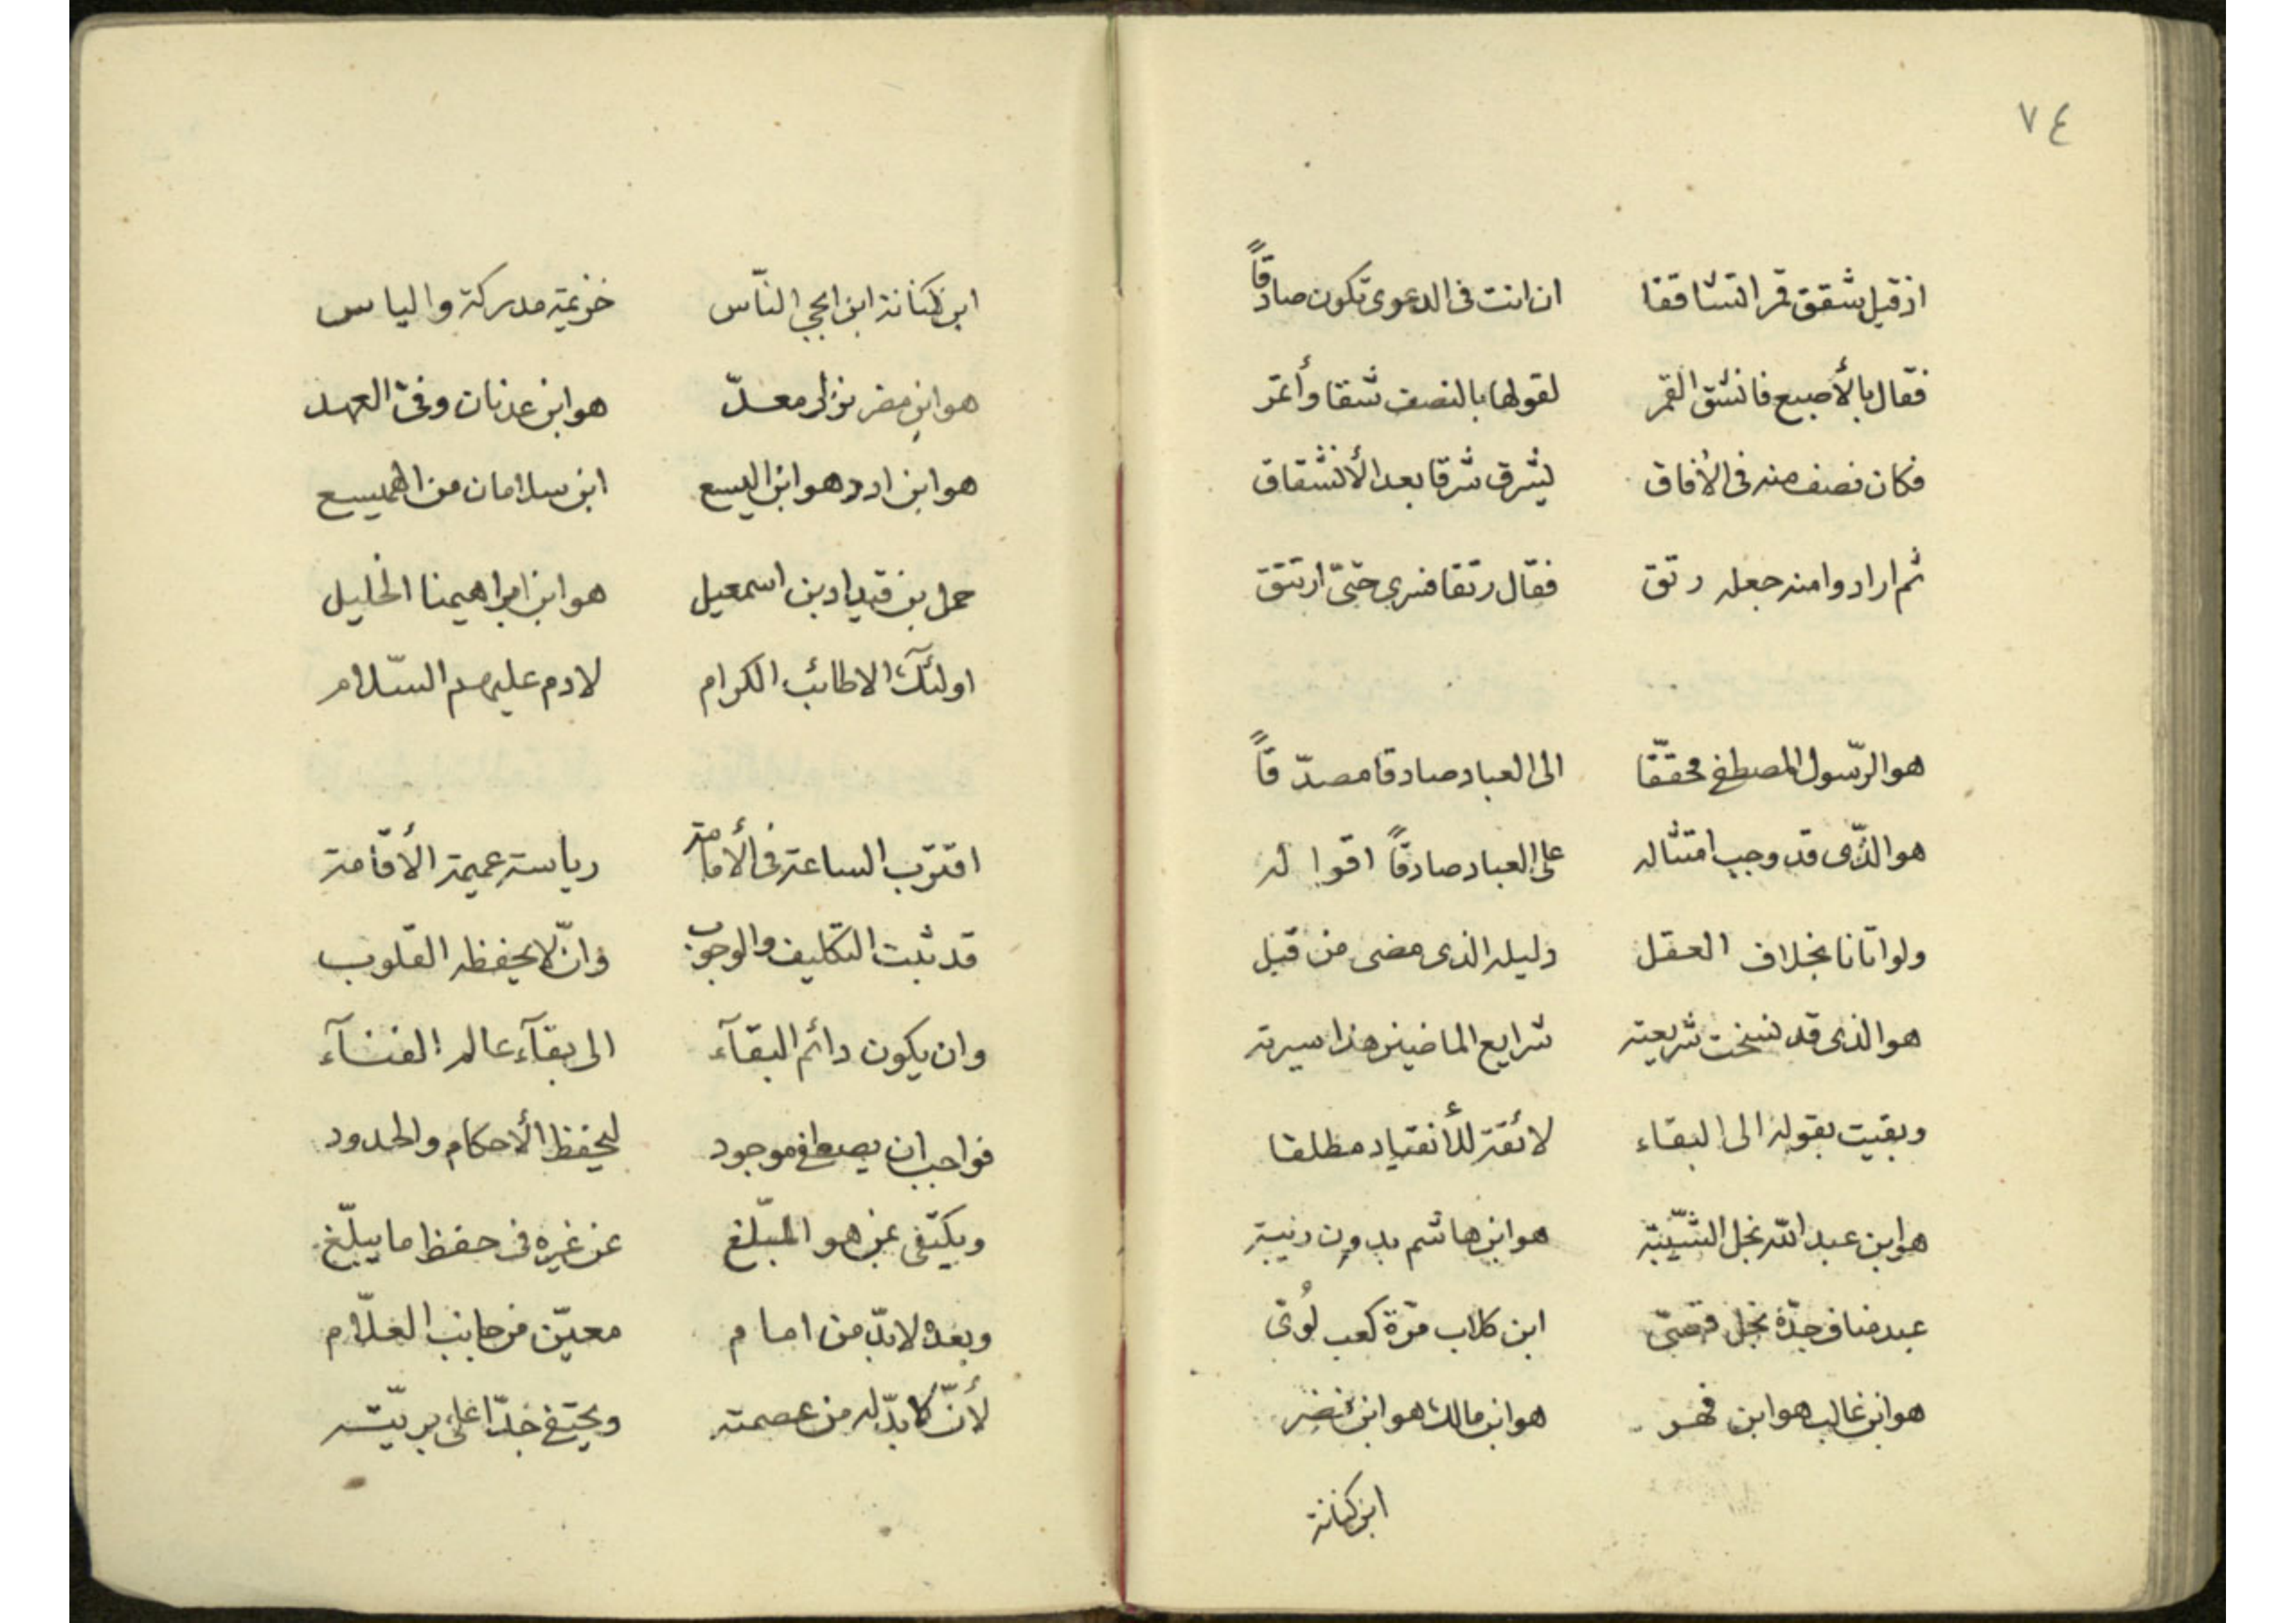 ٧٤
اذ قيل شقق قمر التشاققا ان انت فى الدعوى تكون صادقاً
فقال بالأصبع فانشق القمر لقولها بالنصف شقا وأتمر
فكان نصف منه فى الأفاق ليشرق شرقا بعد الأنشقاق
ثم ارادوا منه جعله رتق فقال رتقا فنرى حتىّ ارتتق
هو الرّسول المصطفى محققّا الى العباد صادقا مصدّقاً
هو الذّى قد وجب امتثاله على العباد صادقاً اقواله
ولو اتانا بخلاف العقل دليله الذى مضى من قبل
هو الذى قد نسخت شريعته شرايع الماضين هذا سيرته
وبقيت بقوله الى البقاء لائقة للأنقياد مطلقا
هو ابن عبد الله نجل الشّيبة هو ابن هاشم بدون ريبة
عبد مناف جدّه نجل قصّى ابن كلاب مرّة كعب لُوىّ
هو ابن غالب هو ابن فهر هو ابن مالك هو ابن نضر
ابن كنانة
ابن كنانة ابن الناّس خزيمة مدركة والياس
هو ابن مضر نزار معدّ هو ابن عدنان وفىّ العهد
هو ابن ادد هو ابن اليسع ابن سلامان من الهميسع
حمل بن قيدار بن اسمعيل هو ابن ابراهيمنا الخليل
اولئك الاطائب الكرام لادم عليهم السّلام
اقترب الساعة فى الأمامة رياسة عميمة الأقامة
قد ثبت التكليف والوجوب وانّ لا يحفظه القلوب
وان يكون دائم البقآء الى بقآء عالم الفنآء
فواجب ان يصطفى موجود ليحفظ الأحكام والحدود
ويكتفى عن هو المبّلغ عن غيره فى حفظ ما يبلّغ
وبعده لابدّ من امام معيّن من جانب العلّام
لأنّ لا بدّ له من عصمته ويختفى جدّا على بريّته